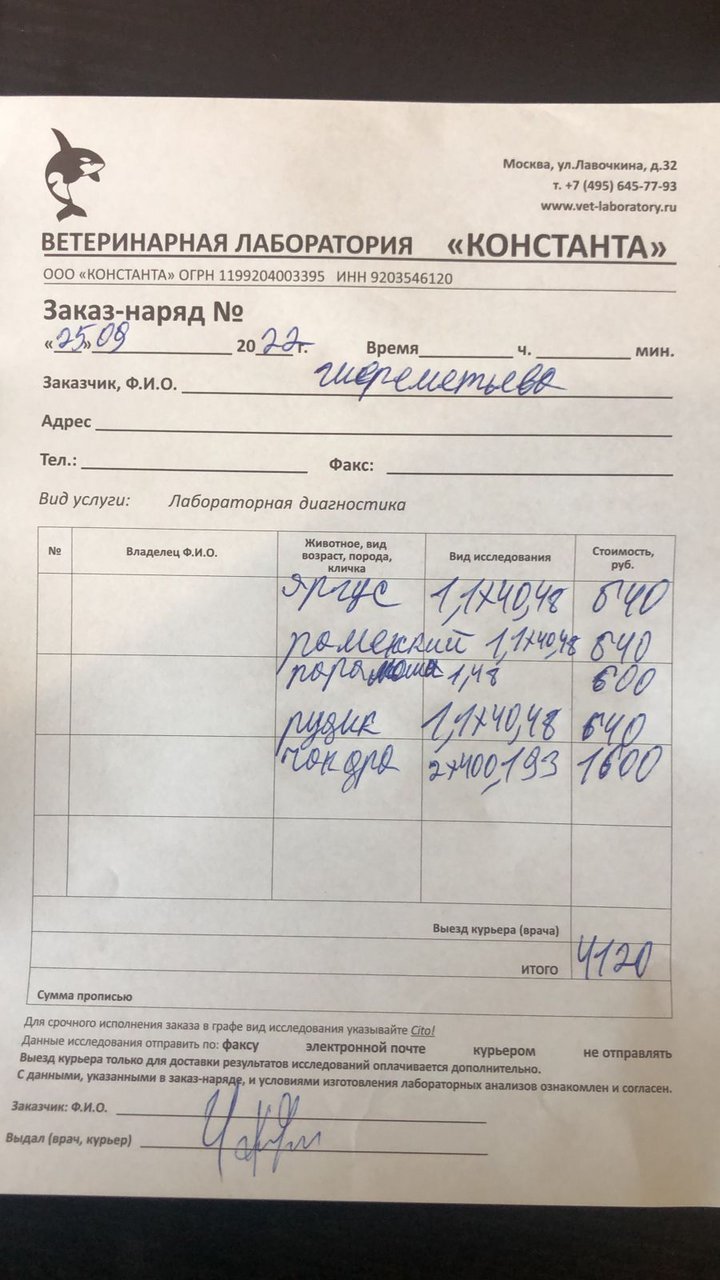 Москва, ул.Лавочкина, д.32
т. +7 (495) 645-77-93
www.vet-laboratory.ru
ВЕТЕРИНАРНАЯ ЛАБОРАТОРИЯ «КОНСТАНТА»
ООО «КОНСТАНТА» ОГРН 1199204003395 ИНН 9203546120
Заказ-наряд №
«25» 09 2022г. Время ч. мин.
Заказчик, Ф.И.О. Шереметьева
Адрес
Тел.: Факс:
Вид услуги: Лабораторная диагностика
№ Владелец Ф.И.О. Животное, вид возраст, порода, кличка Вид исследования Стоимость, руб.
Яргус 1,1х40,48 640
1,1х40,48 640
1,48 600
Рудик 1,1х40,48 640
Чандра 2х400,193 1600
Выезд курьера (врача)
ИТОГО 4120
Сумма прописью
Для срочного исполнения заказа в графе вид исследования указывайте Cito!
Данные исследования отправить по: факсу электронной почте курьером не отправлять
Выезд курьера только для доставки результатов исследований оплачивается дополнительно.
С данными, указанными в заказ-наряде, и условиями изготовления лабораторных анализов ознакомлен и согласен.
Заказчик: Ф.И.О.
Выдал (врач, курьер)